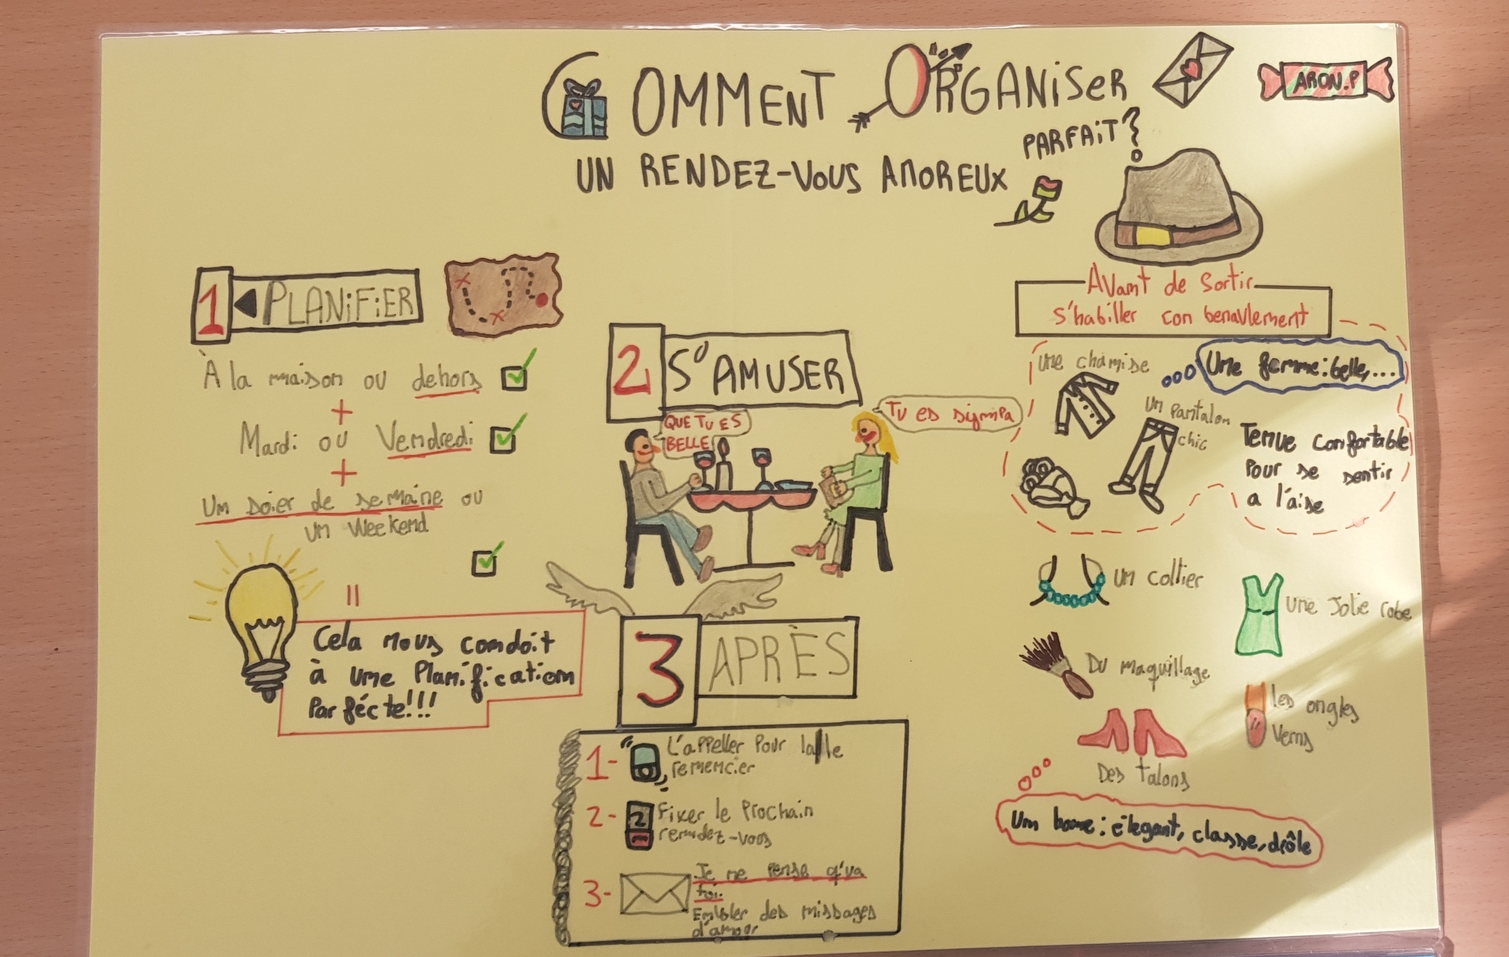 COMMENT ORGANiSER
UN RENDEZ-VOUS AMOREUX
PARFAiT?
ARON.P
1 PLANiFiER
À la maison ou dehors
+
Mardi ou Vendredi
+
Un soier de semaine ou
un weekend
=
Cela nous condoit
à une Planification
Parfécte!!!
2 S'AMUSER
QUE TU ES
BELLE
Tu es signpa
3 APRÈS
1- L'appeller Pour la/le
remencier
2- 2 Fixer le Prochain
remdez-vous
3- Je ne pense qu'va
toi.
des missages
d'amoor
Avant de sortir
s'habiller con benavlement
une chamise
Une femme: belle,...
un pantalon
chic
Tenue confortable
Pour se sentir
a l'aise
un collier
une Jolie robe
Du maquillage
les ongles
Verns
Des talons
Un home: élegant, classe, drôle